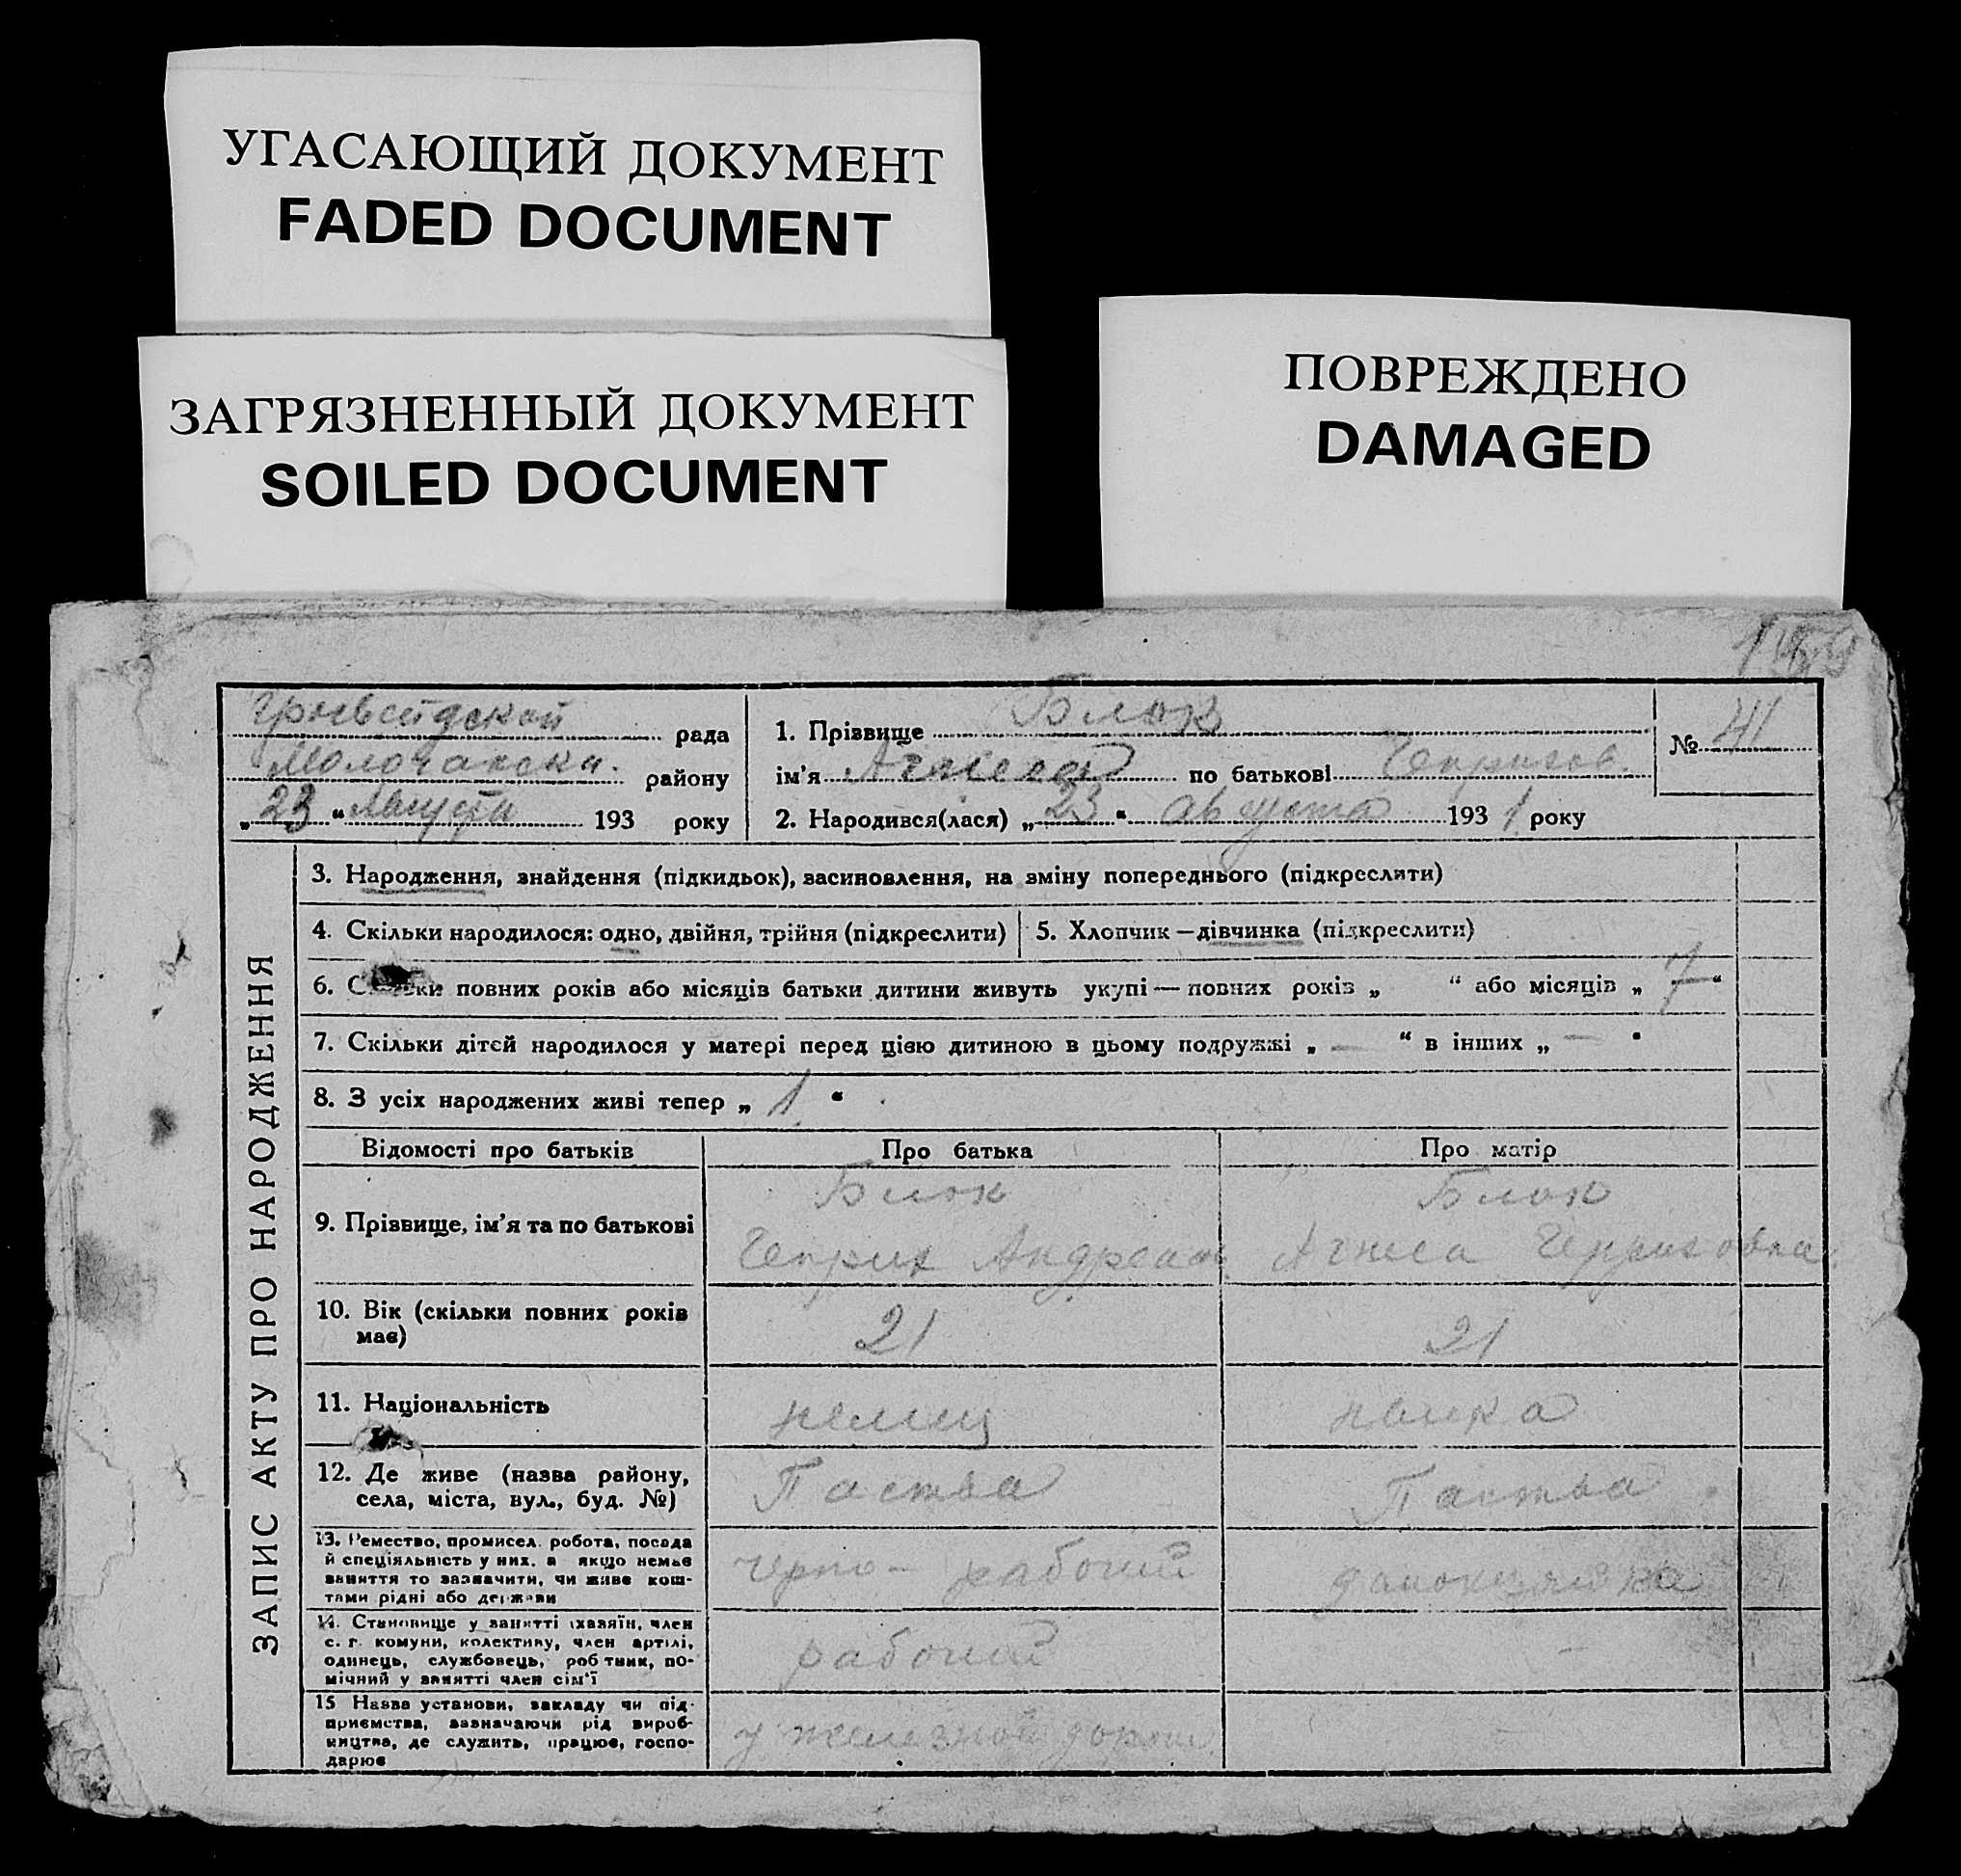 УГАСАЮЩИЙ ДОКУМЕНТ
FADED DOCUMENT
ЗАГРЯЗНЕННЫЙ ДОКУМЕНТ
SOILED DOCUMENT
ПОВРЕЖДЕНО
DAMAGED
рада
района
району
„23“ Августа 193 року
1. Прізвище Блок
ім’я Агнеса по батькові Генрихов.
№ 41
2. Народився(лася) „23“ августа 1931 року
ЗАПИС АКТУ ПРО НАРОДЖЕННЯ
3. Народження, знайдення (підкидьок), засиновлення, на зміну попереднього (підкреслити)
4. Скільки народилося: одно, двійня, трійня (підкреслити)
5. Хлопчик — дівчинка (підкреслити)
6. Скільки повних років або місяців батьки дитини живуть укупі — повних років „ “ або місяців „7“
7. Скільки дітей народилося у матері перед цією дитиною в цьому подружжі „ — “ в інших „ — “
8. З усіх народжених живі тепер „1“
Відомості про батьків
Про батька
Про матір
9. Прізвище, ім’я та по батькові
Блок
Генрих Андреев.
Блок
Агнеса Генриховна
10. Вік (скільки повних років має)
21
21
11. Національність
немец
немка
12. Де живе (назва району, села, міста, вул., буд. №)
Паства
Паства
13. Ремество, промисел, робота, посада й спеціяльність у них, а якщо немає заняття то зазначити, чи живе коштами рідні або держави
черно-рабочий
домохозяйка
14. Становище у занятті (хазяїн, член с. г. комуни, колективу, член артілі, одинець, службовець, робітник, помічний у занятті член сім’ї
рабочий
—
15 Назва установи, закладу чи підприємства, зазначаючи рід виробництва, де служить, працює, господарює
у железной дороги